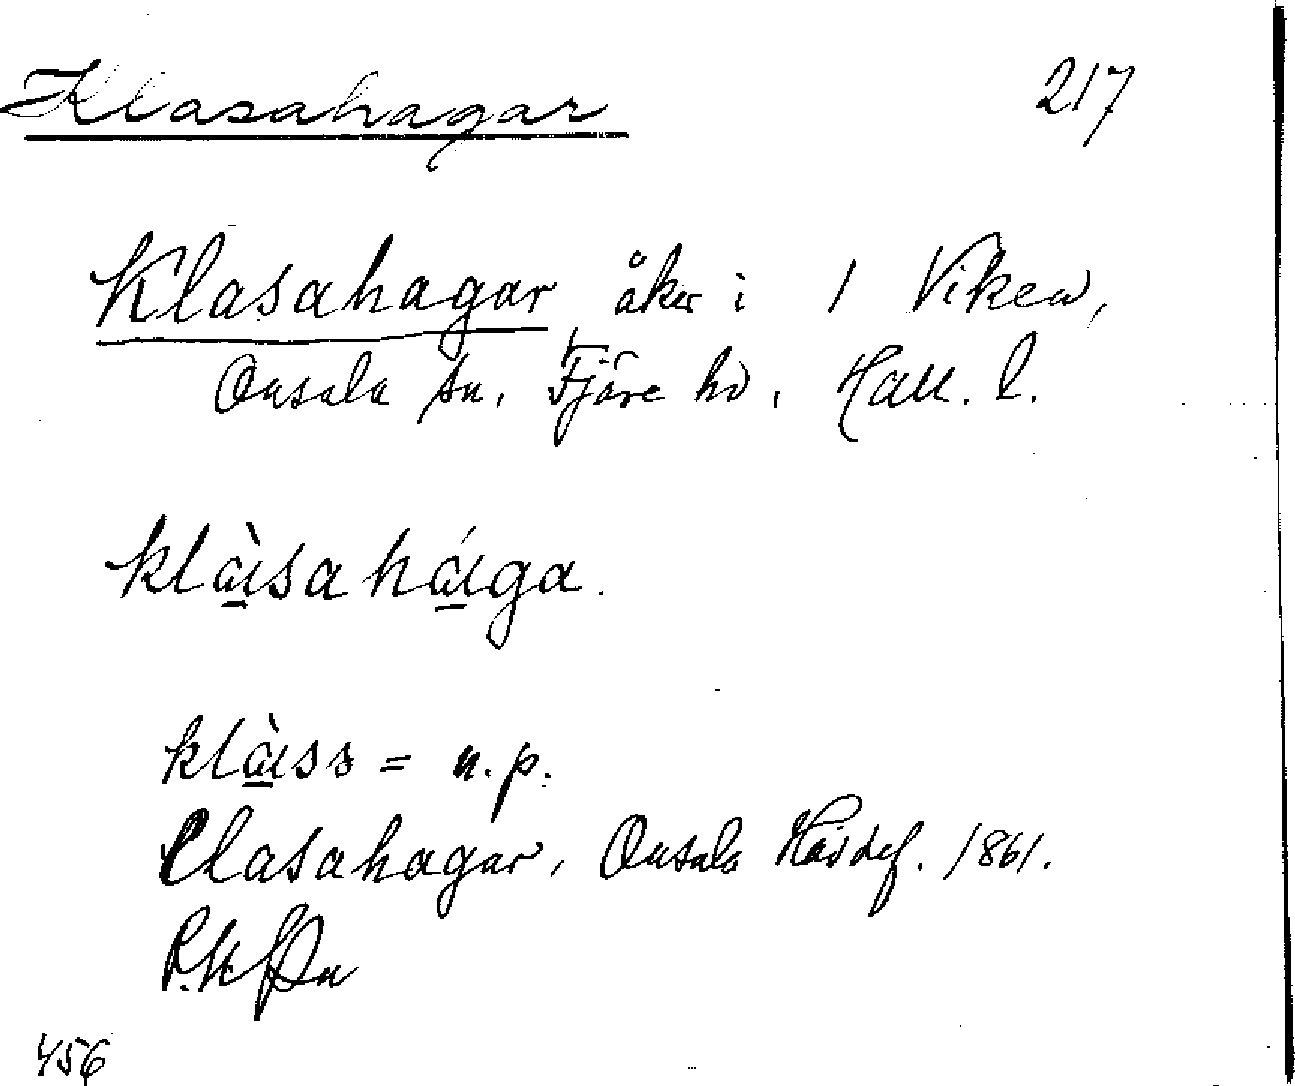 Klasahagar 217
Klasahagar åker i 1 Viken,
Onsala sn, Fjäre hd, Hall. l.
klàsahága.
klàss = n.p.
Clasahagar, Onsala 1861.
456